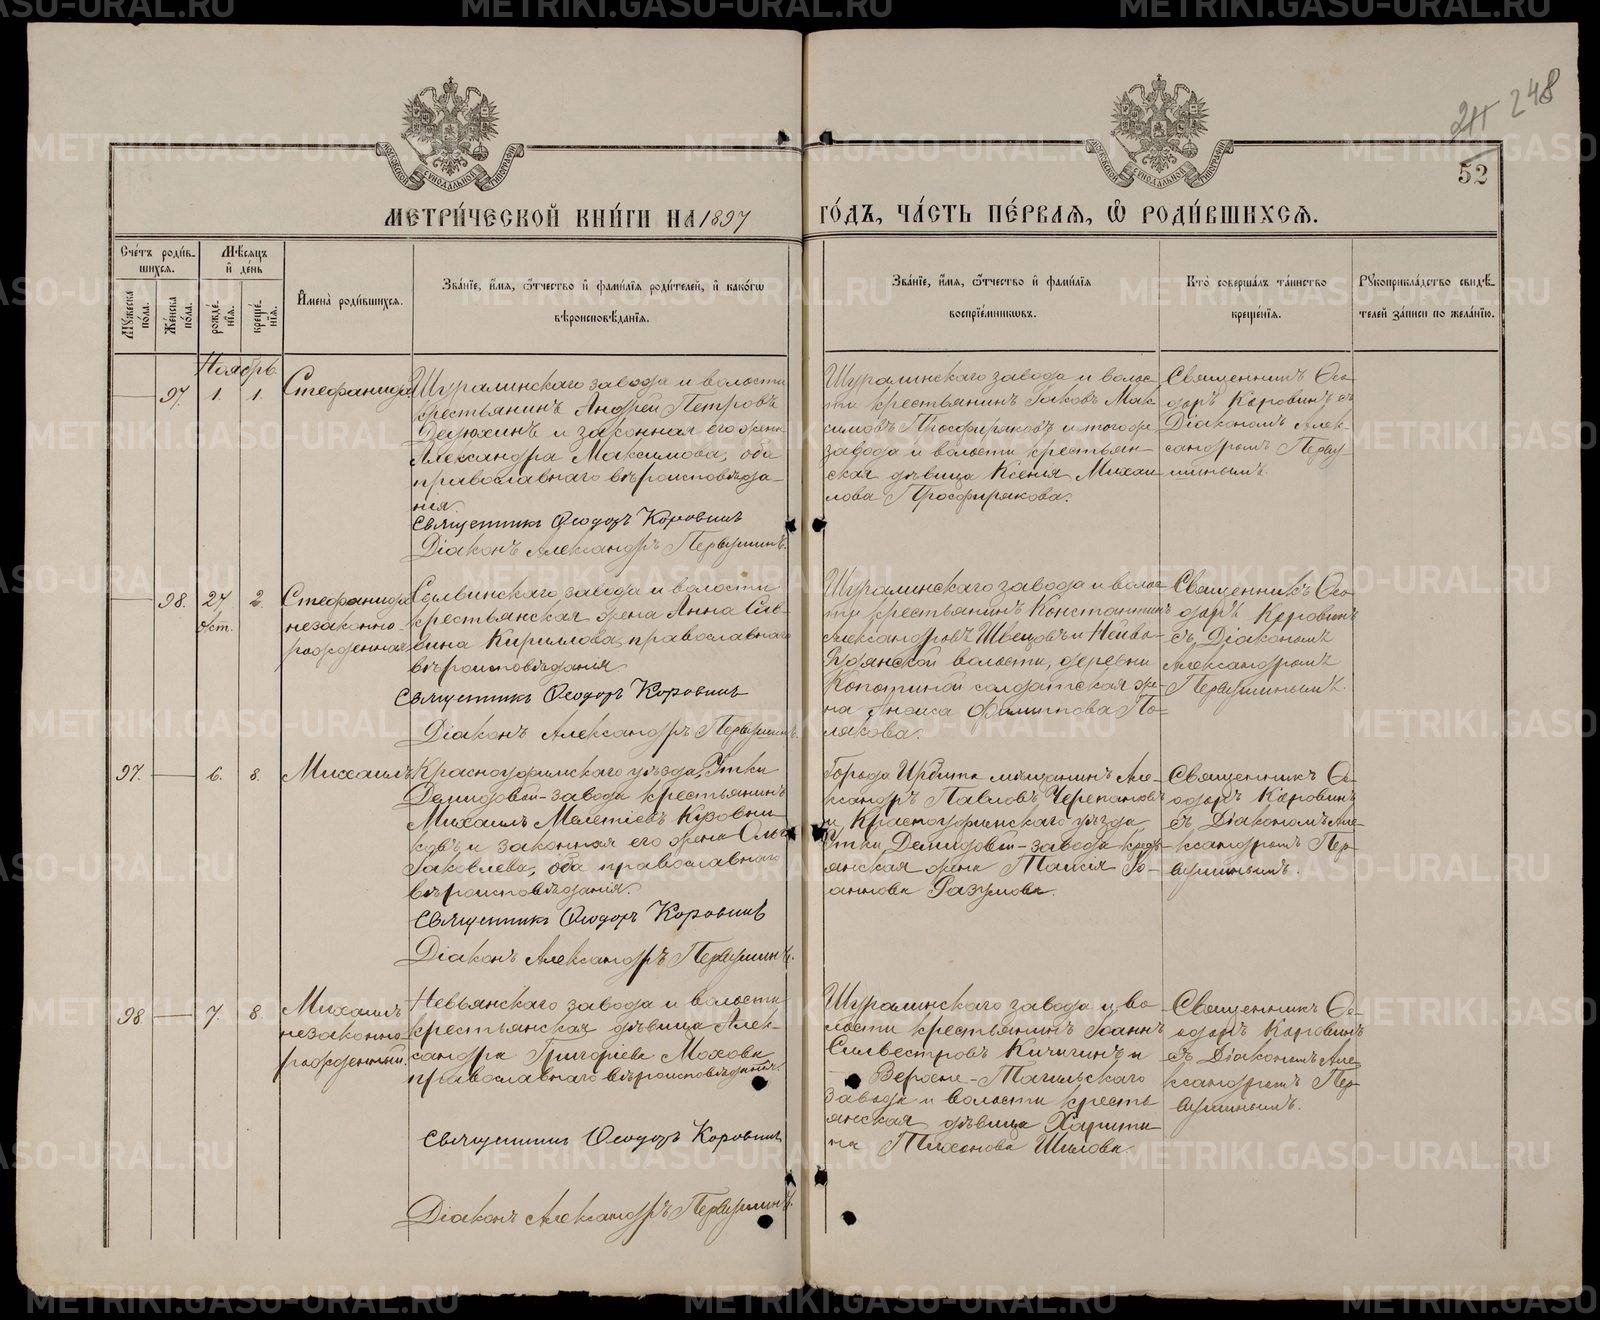 248
211
52
МЕТРИ́ЧЕСКОЙ КНИ́ГИ НА 1897 ГО́ДЪ, ЧА́СТЬ ПЕ́РВАЯ, Ѽ РОДИ́ВШИХСЯ.
Сче́тъ роди́в-
шихся.
Мѣ́сяцъ
и҆ де́нь
Мꙋ́жеска по́ла.
Же́нска по́ла.
рожде́нїя.
креще́нїя.
И҆мена̀ роди́вшихся.
Зва́нїе, и҆́мя, ѻ҆́тчество и҆ фами́лїя роди́телей, и҆ како́гѡ
вѣроисповѣ́данїя.
Зва́нїе, и҆́мя, ѻ҆́тчество и҆ фами́лїя
воспрїе́мниковъ.
Кто̀ соверша́лъ та́инство
креще́нїя.
Рꙋкоприкла́дство свидѣ́-
телей за́писи по жела́нїю.
Ноябрь.
97. 1. 1. Стефанида
Шуралинскаго завода и волости
крестьянинъ Андрей Петровъ
и законная его жена
Александра Максимова, оба
православнаго вѣроисповѣда-
нія.
Священникъ Ѳеодоръ Коровинъ
Діаконъ Александръ Первушинъ.
Шуралинскаго завода и волос-
ти крестьянинъ Іаковъ Мак-
симовъ Просфиряковъ и того же
завода и волости крестьян-
ская дѣвица Ксенія Михаи-
лова Просфирякова.
Священникъ Ѳео-
доръ Коровинъ съ
Діакономъ Алек-
сандромъ Перву-
шинымъ.
98. 27 окт. 2. Стефанида
незаконно-
рожденная
Сылвинскаго завода и волости
крестьянская жена Анна Сав-
вина Кирилова, православнаго
вѣроисповѣданія
Священникъ Ѳеодоръ Коровинъ
Діаконъ Александръ Первушинъ.
Шуралинскаго завода и волос-
ти крестьянинъ Константинъ
Александровъ Швецовъ и Нейво-
Рудянской волости, деревни
Копотиной солдатская же-
на Анисія Филиппова По-
лякова.
Священникъ Ѳео-
доръ Коровинъ
съ Діакономъ
Александромъ
Первушинымъ.
97. 6. 8. Михаилъ
Красноуфимскаго уѣзда, Утки
Демидовой-завода крестьянинъ
Михаилъ Мелетіевъ Коровни-
ковъ и законная его жена Ольга
Іаковлева, оба православнаго
вѣроисповѣданія.
Священникъ Ѳеодоръ Коровинъ
Діаконъ Александръ Первушинъ.
Города Ирбита мѣщанинъ Але-
ксандръ Павловъ Черепановъ
и Красноуфимскаго уѣзда
Утки Демидовой-завода кресть-
янская жена Таисія Іо-
аннова Разумова.
Священникъ Ѳе-
одоръ Коровинъ
съ Діакономъ Але-
ксандромъ Пер-
вушинымъ.
98 7. 8. Михаилъ
незаконно-
рожденный.
Невьянскаго завода и волости
крестьянская дѣвица Алек-
сандра Григоріева Мохова
православнаго вѣроисповѣданія.
Священникъ Ѳеодоръ Коровинъ
Діаконъ Александръ Первушинъ.
Шуралинскаго завода и во-
лости крестьянинъ Іоаннъ
Силвестровъ Кичигинъ и
Верхне-Тагильскаго
завода и волости кресть-
янская дѣвица Харити-
на Тихонова Шилова.
Священникъ Ѳе-
одоръ Коровинъ
съ Діакономъ Але-
ксандромъ Пер-
вушинымъ.
METRIKI.GASO-URAL.RU